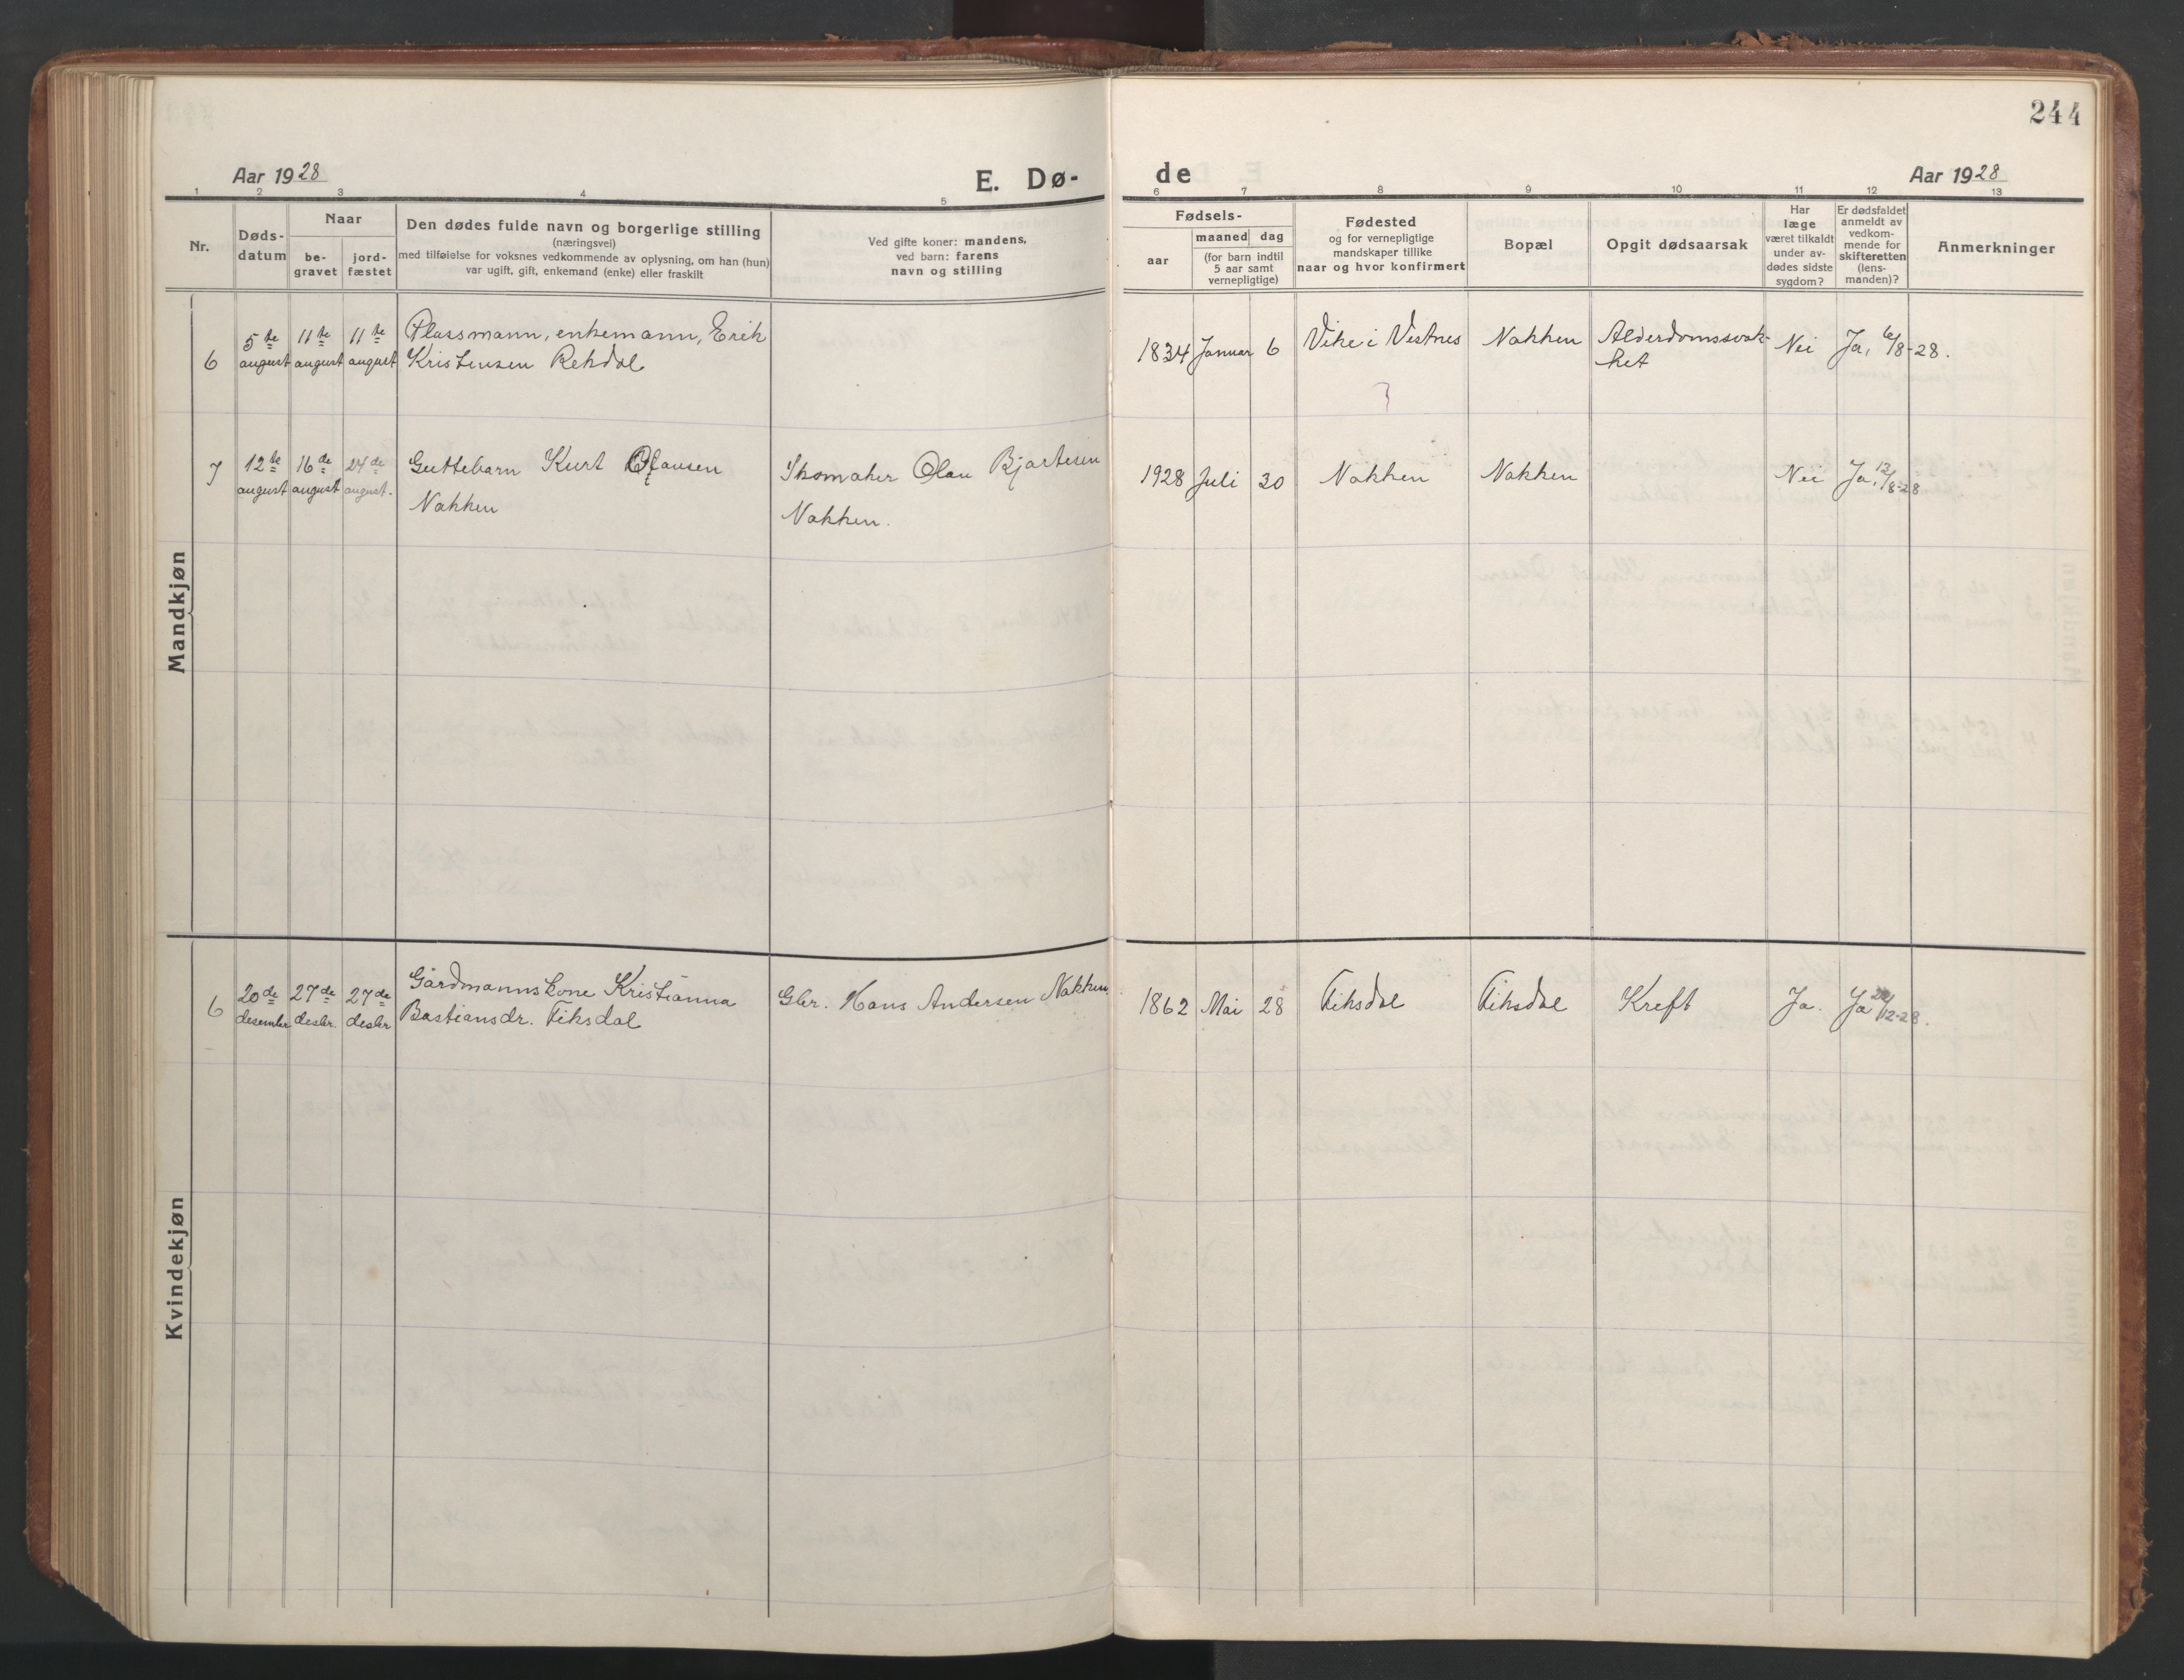 244
Aar 1928
E. Dø-
de
Aar 1928
1 2 3 4 5 6 7 8 9 10 11 12 13
Nr.
Døds-
datum
Naar
be-
gravet
jord-
fæstet
Den dødes fulde navn og borgerlige stilling
(næringsvei)
med tilføielse for voksnes vedkommende av oplysning, om han (hun)
var ugift, gift, enkemand (enke) eller fraskilt
Ved gifte koner: mandens,
ved barn: farens
navn og stilling
Fødsels-
aar
maaned dag
(for barn indtil
5 aar samt
vernepligtige)
Fødested
og for vernepligtige
mandskaper tillike
naar og hvor konfirmert
Bopæl
Opgit dødsaarsak
Har
læge
været tilkaldt
under av-
dødes sidste
sygdom?
Er dødsfaldet
anmeldt av
vedkom-
mende for
skifteretten
(lens-
manden)?
Anmerkninger
Mandkjøn
6
5te
august
11te
august
11te
august
Plassmann, enkemann, Erik
Kristensen Rekdal
1834 Januar 6
Vike i Vestnes
Nakken
Alderdomssvak-
het
Nei
Ja, 6/8-28.
7
12te
august
16de
august
24de
august.
Guttebarn Kurt Olausen
Nakken
Skomaker Olau Bjartesen
Nakken.
1928 Juli 30
Nakken
Nakken
Nei
Ja, 13/8-28
Kvindekjøn
6
20de
desember
27de
desbr.
27de
desbr
Gårdmannskone Kristianna
Bastiansdr. Fiksdal
Gbr. Hans Andersen Nakken.
1862 Mai 28
Fiksdal
Fiksdal
Kreft
Ja.
Ja /12-28.